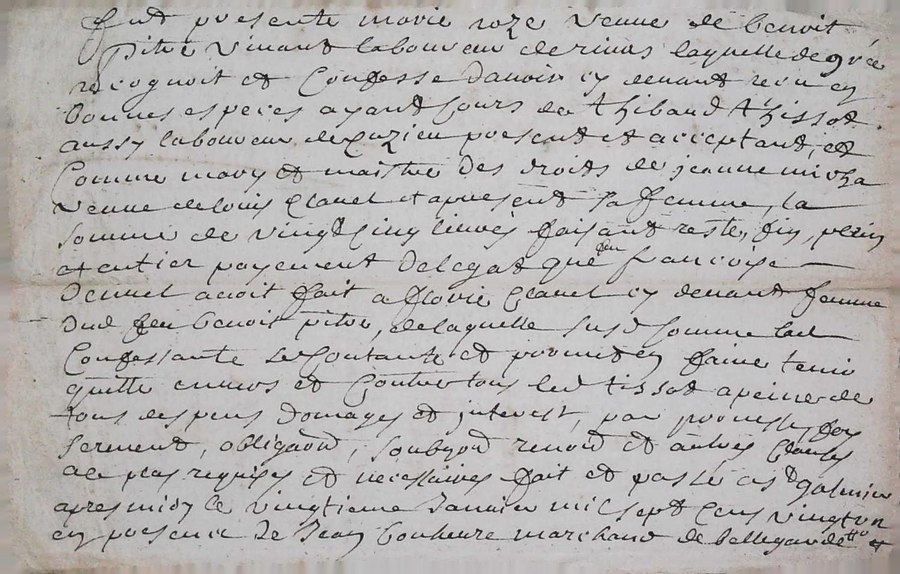 fut presente marie roze veuve de benoit
pitre vivant laboureur de rivas laquelle de gré a
recognoit et Confesse d'avoir cy devant receu en
bonnes especes ayant Cours de thibaud thissot
aussy laboureur de Cuzieu present et acceptant, et
Comme mary et maistre des droits de jeanne
veuve de louis Clavel et apresent sa femme, la
somme de vingt Cinq livres faisant reste, fin, plein
et entier payement de legat que feu francoise
avoit fait a florie Clavel cy devant femme
dud feu benoit pitre, de laquelle susd somme lad
Confessante se Contante et promet en faire tenir
quitte envers et Contre tous led tissot a peine de
tous despens domages et interest, par promesse, foy
serment, obligaon, soubzon, renon et autres Clauses
de plus requises et necessaires fait et passé a st galmier
apres midy le vingtieme Janvier mil sept Cens vingt un
en presence de Jean bonheure marchand de bellegarde et